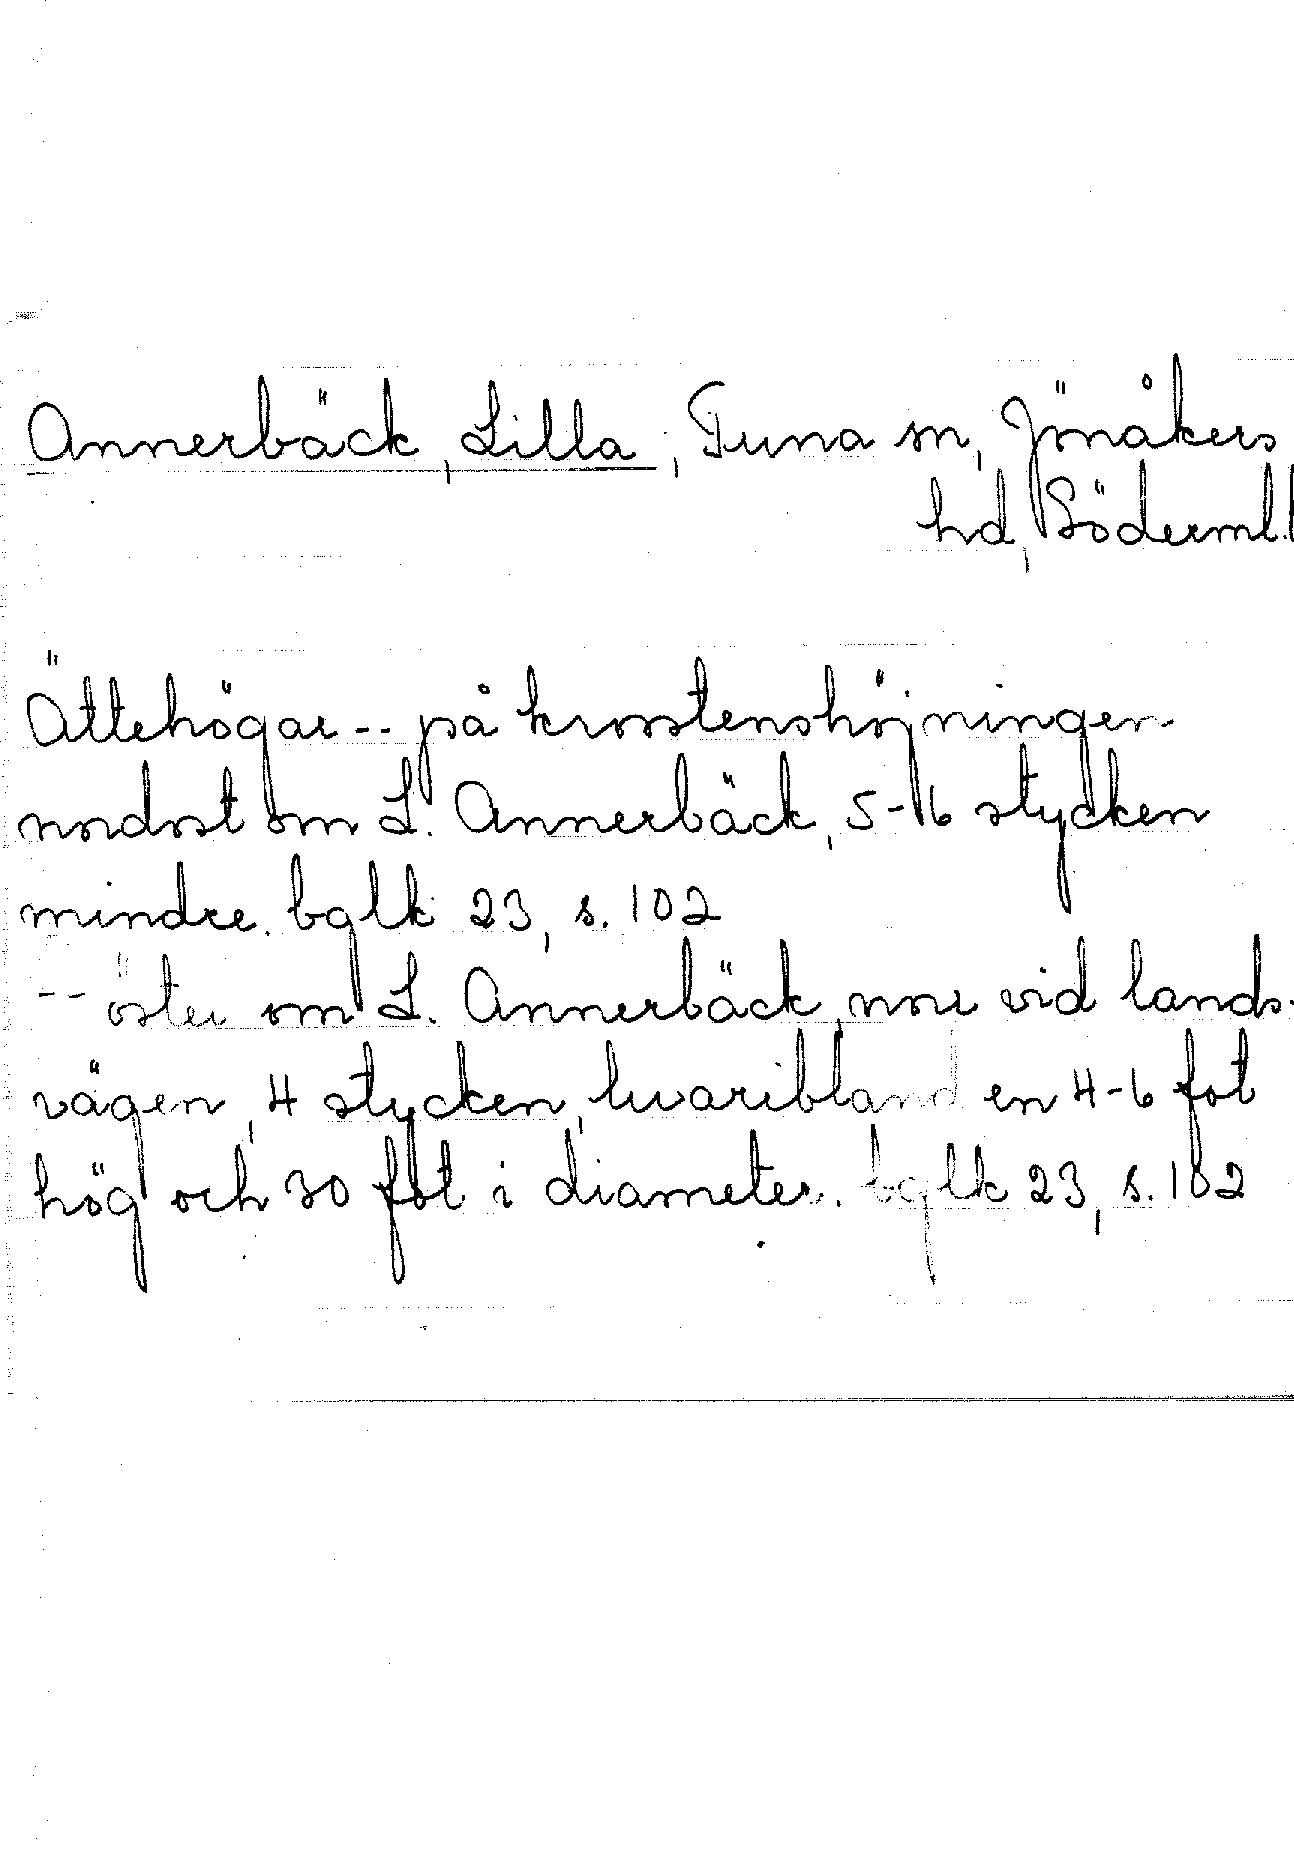 Annerbäck, Lilla, Tuna sn, Jönåkers
hd, Söderml.
Ättehögar -- på krosstenshöjningen
nordost om L. Annerbäck, 5-16 stycken
mindre. bglk 23, s. 102
-- öster om L. Annerbäck, norr vid lands-
vägen, 4 stycken, hvaribland en 4-6 fot
hög och 30 fot i diameter. bglk 23, s. 102